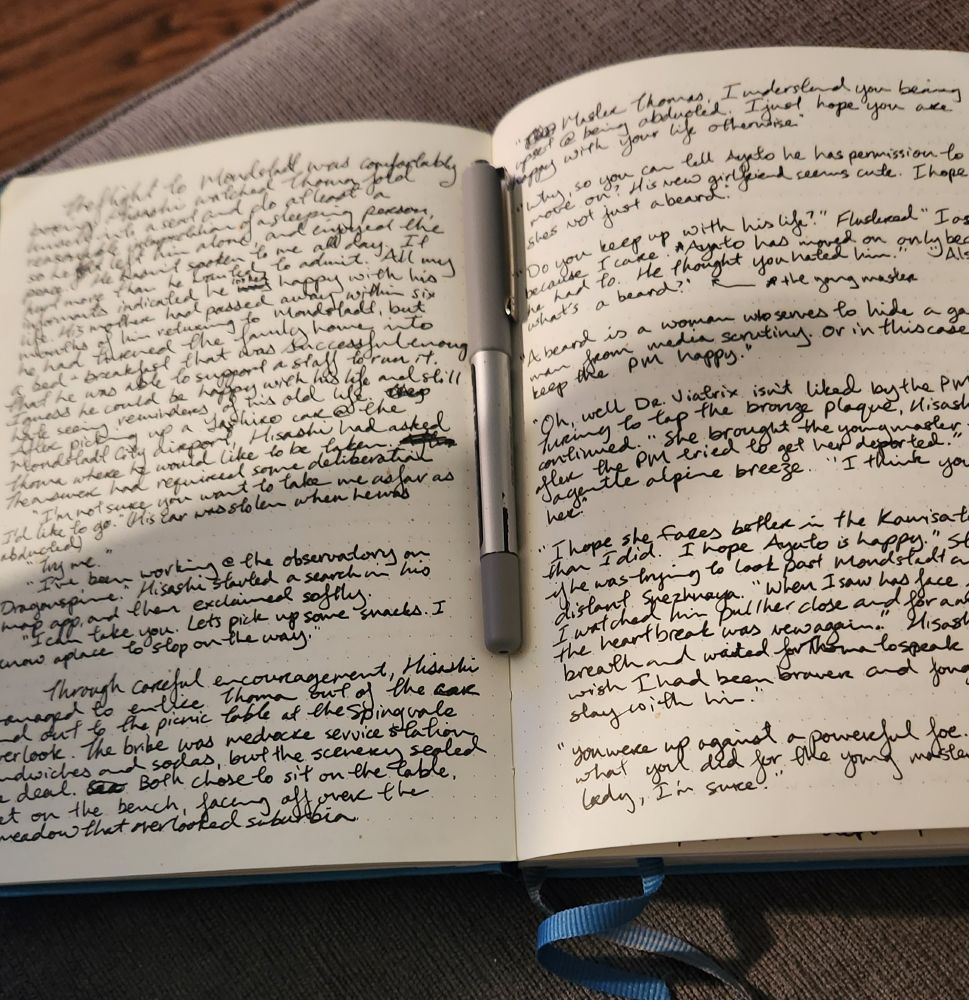 The flight to Mondstadt was comfortably
boring. Hisashi watched Thoma fold
himself into a seat and do at least a
reasonable interpolation of a sleeping person,
so he left him alone, and enjoyed the
peace. He hasn't spoken to me all day. It
hurt more than he wanted to admit. All my
informants indicated he is happy with his
life. His mother had passed away within six
months of him returning to Mondstadt, but
he had turned the family home into
a bed-breakfast that was successful enough
that he was able to support a staff to run it.
I guess he could be happy with his life and still
hate seeing reminders of his old life.
After picking up a Yashiro car @ the
Mondstadt City airport, Hisashi had asked
Thoma where he would like to be taken.
The answer had required some deliberation
"I'm not sure you want to take me as far as
I'd like to go." (His car was stolen when he was
abducted)
"Try me."
"I've been working @ the observatory on
Dragonspine." Hisashi started a search in his
map app, and then exclaimed softly.
"I can take you. Lets pick up some snacks. I
know a place to stop on the way."
Through careful encouragement, Hisashi
managed to entice Thoma out of the car
and out to the picnic table at the Springvale
overlook. The bribe was mediocre service station
sandwiches and sodas, but the scenery sealed
deal. Both chose to sit on the table,
on the bench, facing off over the
meadow that overlooked suburbia.
"Master Thomas, I understand you being
upset @ being abducted. I just hope you are
happy with your life otherwise"
"Why, so you can tell Ayato he has permission to
move on? His new girlfriend seems cute. I hope
she's not just a beard."
"Do you keep up with his life?" Flustered "I as
because I care. *Ayato has moved on only bec
he had to. He thought you hated him." "Als
what's a beard?" *the young master
"A beard is a woman who serves to hide a ga
man from media scrutiny. Or in this case
keep the PM happy."
"Oh, well Dr. Viatrix isn't liked by the PM
Turing to tap the bronze plaque, Hisash
continued. "She brought the young master
after the PM tried to get her deported."
a gentle alpine breeze. "I think you
her."
"I hope she fares better in the Kamisat
than I did. I hope Ayato is happy." St
if he was trying to look past Mondstadt a
distant Snezhnaya. "When I saw his face
I watched him pull her close and for a
the heartbreak was new again." Hisash
breath and waited for Thoma to speak
wish I had been braver and foug
stay with him."
"You were up against a powerful foe.
what you did for the young master
lady, I'm sure."